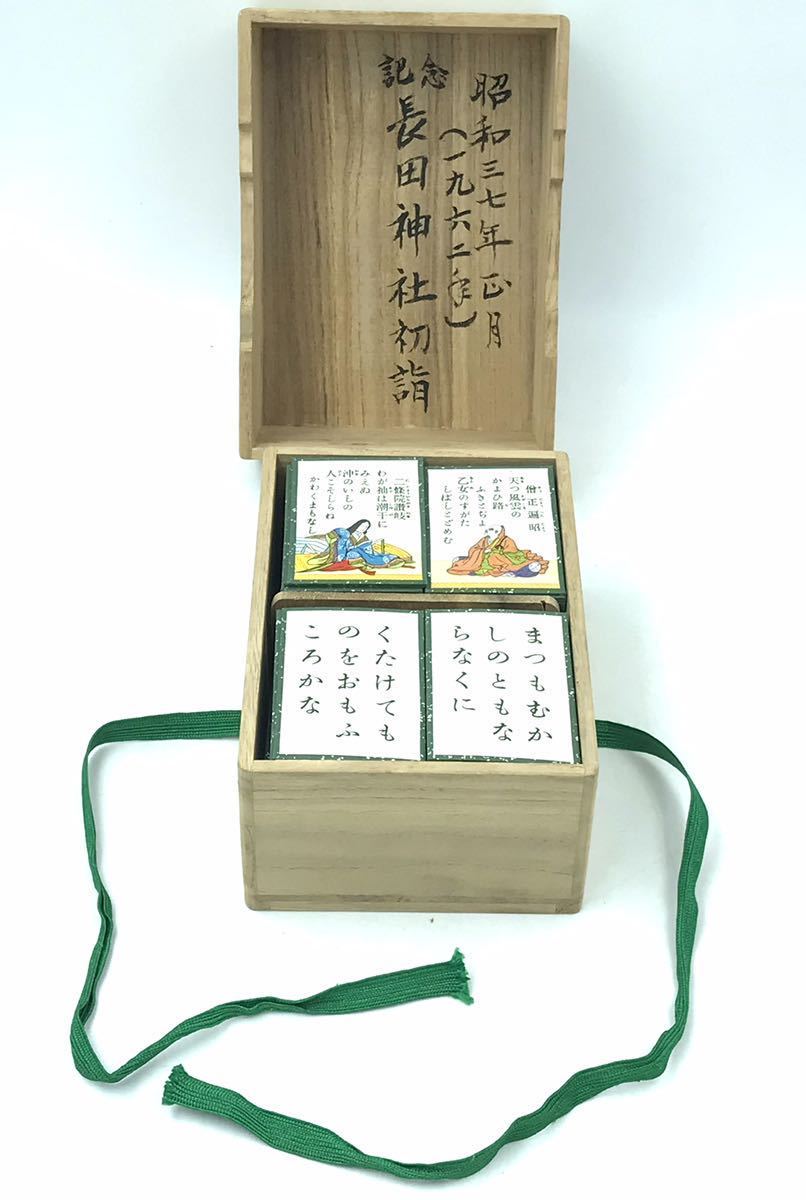 昭和三七年正月
(一九六二年)
記念
長田神社初詣
僧正遍昭
天つ風雲の
かよひ路
ふきとぢよ
乙女のすがた
しばしとどめむ
二條院讃岐
わが袖は潮干に
みえぬ
沖のいしの
人こそしらね
かわくまもなし
まつもむか
しのともな
らなくに
くたけても
のをおもふ
ころかな